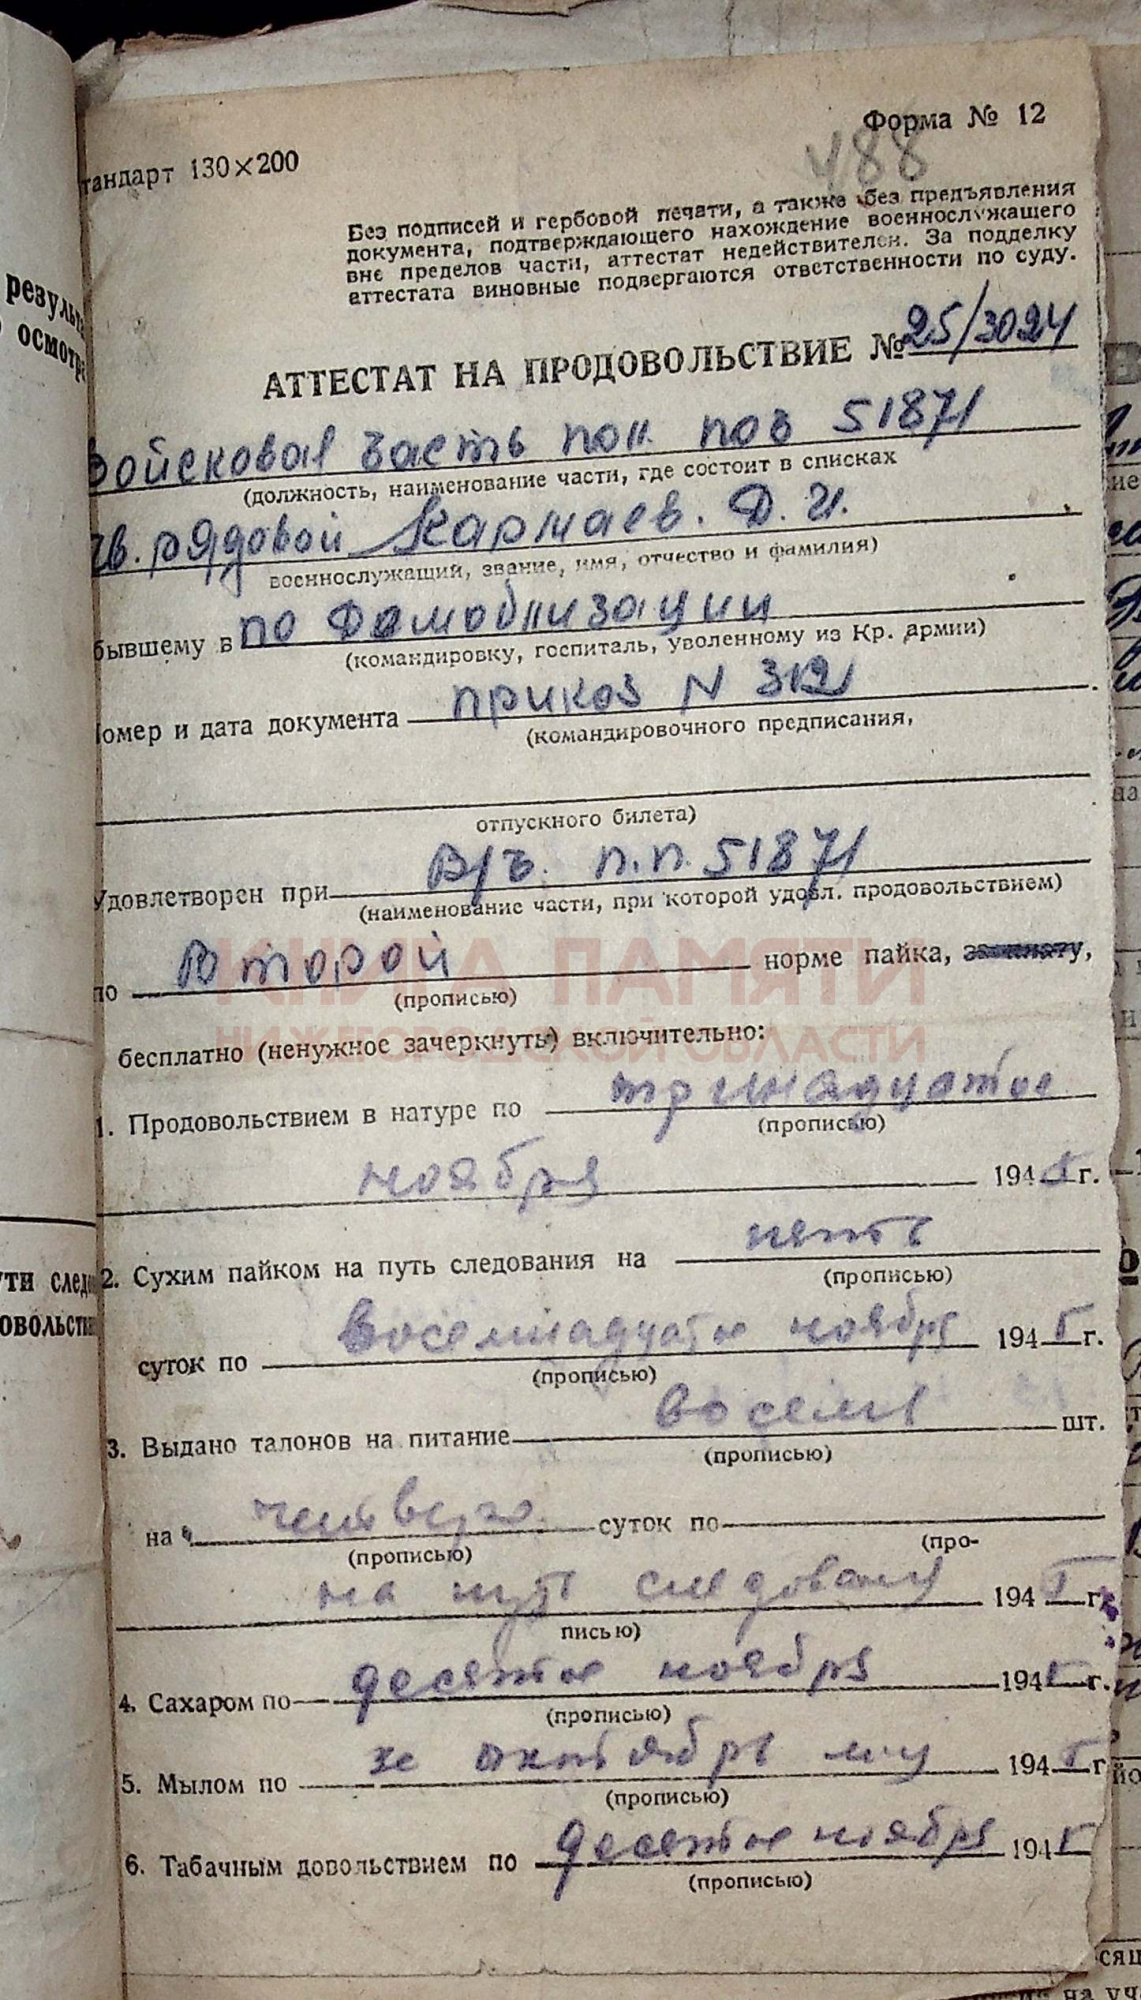 Форма № 12
488
тандарт 130×200
Без подписей и гербовой печати, а также без предъявления
документа, подтверждающего нахождение военнослужащего
вне пределов части, аттестат недействителен. За подделку
аттестата виновные подвергаются ответственности по суду.
АТТЕСТАТ НА ПРОДОВОЛЬСТВИЕ № 25/3024
Войсковая часть пол. поч 51871
(должность, наименование части, где состоит в списках
гв. рядовой Кармаев. Д. И.
военнослужащий, звание, имя, отчество и фамилия)
бывшему в по Демобилизации
(командировку, госпиталь, уволенному из Кр. армии)
омер и дата документа приказ N 312
(командировочного предписания,
отпускного билета)
Удовлетворен при В/ч. п.п. 51871
(наименование части, при которой удовл. продовольствием)
по второй норме пайка, за плату,
(прописью)
бесплатно (ненужное зачеркнуть) включительно:
1. Продовольствием в натуре по тринадцатое
(прописью)
ноября 1945 г.
2. Сухим пайком на путь следования на пять
(прописью)
суток по восемнадцатое ноября 1945 г.
(прописью)
3. Выдано талонов на питание восемь шт.
(прописью)
на четверо суток по
(прописью) (про-
на путь следования 1945 г.
писью)
4. Сахаром по десятое ноября 1945 г.
(прописью)
5. Мылом по октябрь м-ц 1945 г
(прописью)
6. Табачным довольствием по десятое ноября 1945
(прописью)
КНИГА ПАМЯТИ
НИЖЕГОРОДСКОЙ ОБЛАСТИ